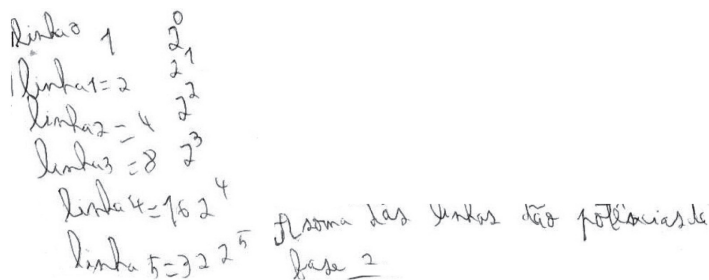 linha0 1 2^0
linha1=2 2^1
linha2=4 2^2
linha3=8 2^3
linha4=16 2^4
linha5=32 2^5 A soma das linhas dão potências de
base 2